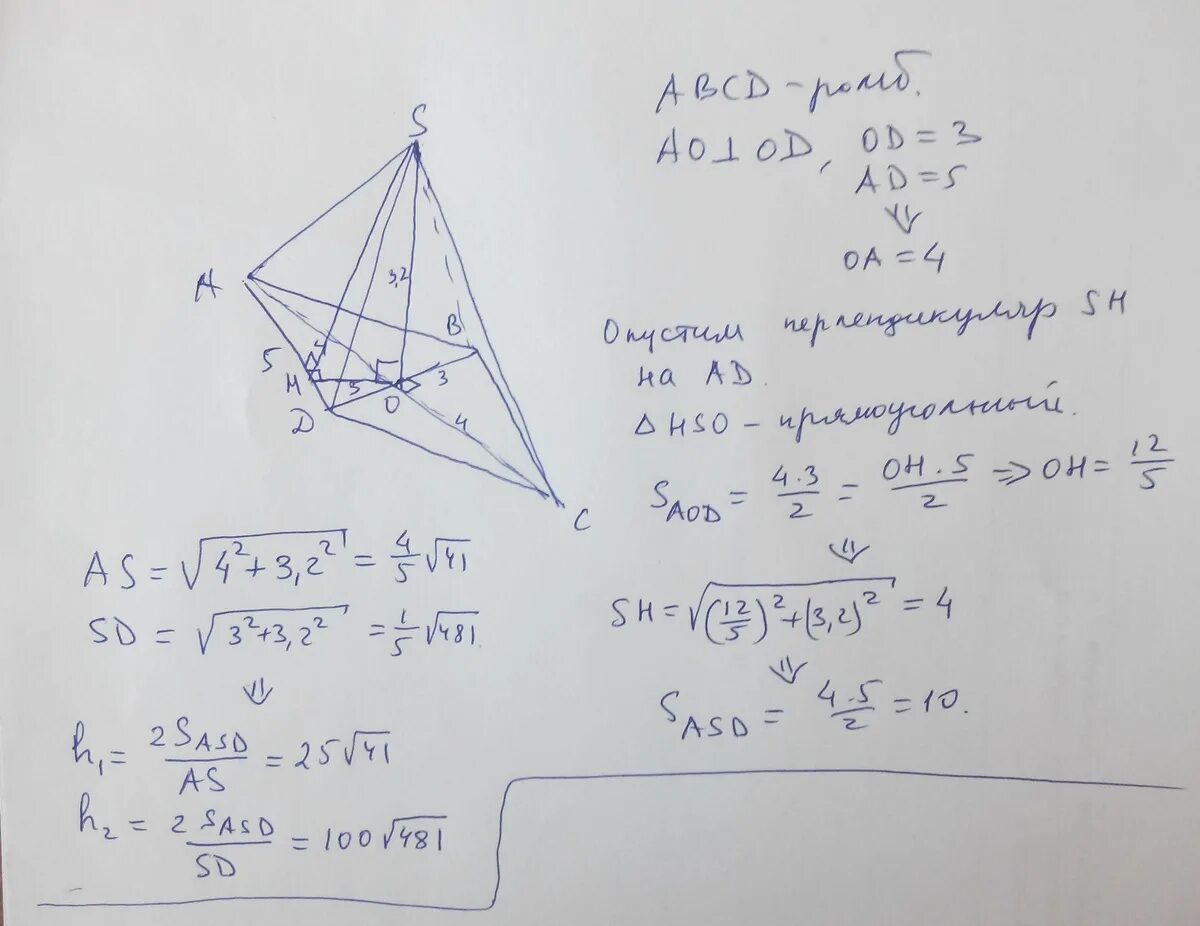 S
A
3,2
B
5
4
H
5
3
D
O
4
C
ABCD – ромб.
AO⊥OD, OD = 3
AD = 5
⇓
OA = 4
Опустим перпендикуляр SH
на AD.
△HSO – прямоугольный.
S_AOD = 4·3/2 = OH·5/2 ⇒ OH = 12/5
⇓
SH = √((12/5)² + (3,2)²) = 4
⇓
S_ASD = 4·5/2 = 10.
AS = √(4² + 3,2²) = 4/5 √41
SD = √(3² + 3,2²) = 1/5 √481.
⇓
h₁ = 2S_ASD/AS = 25√41
h₂ = 2S_ASD/SD = 100√481